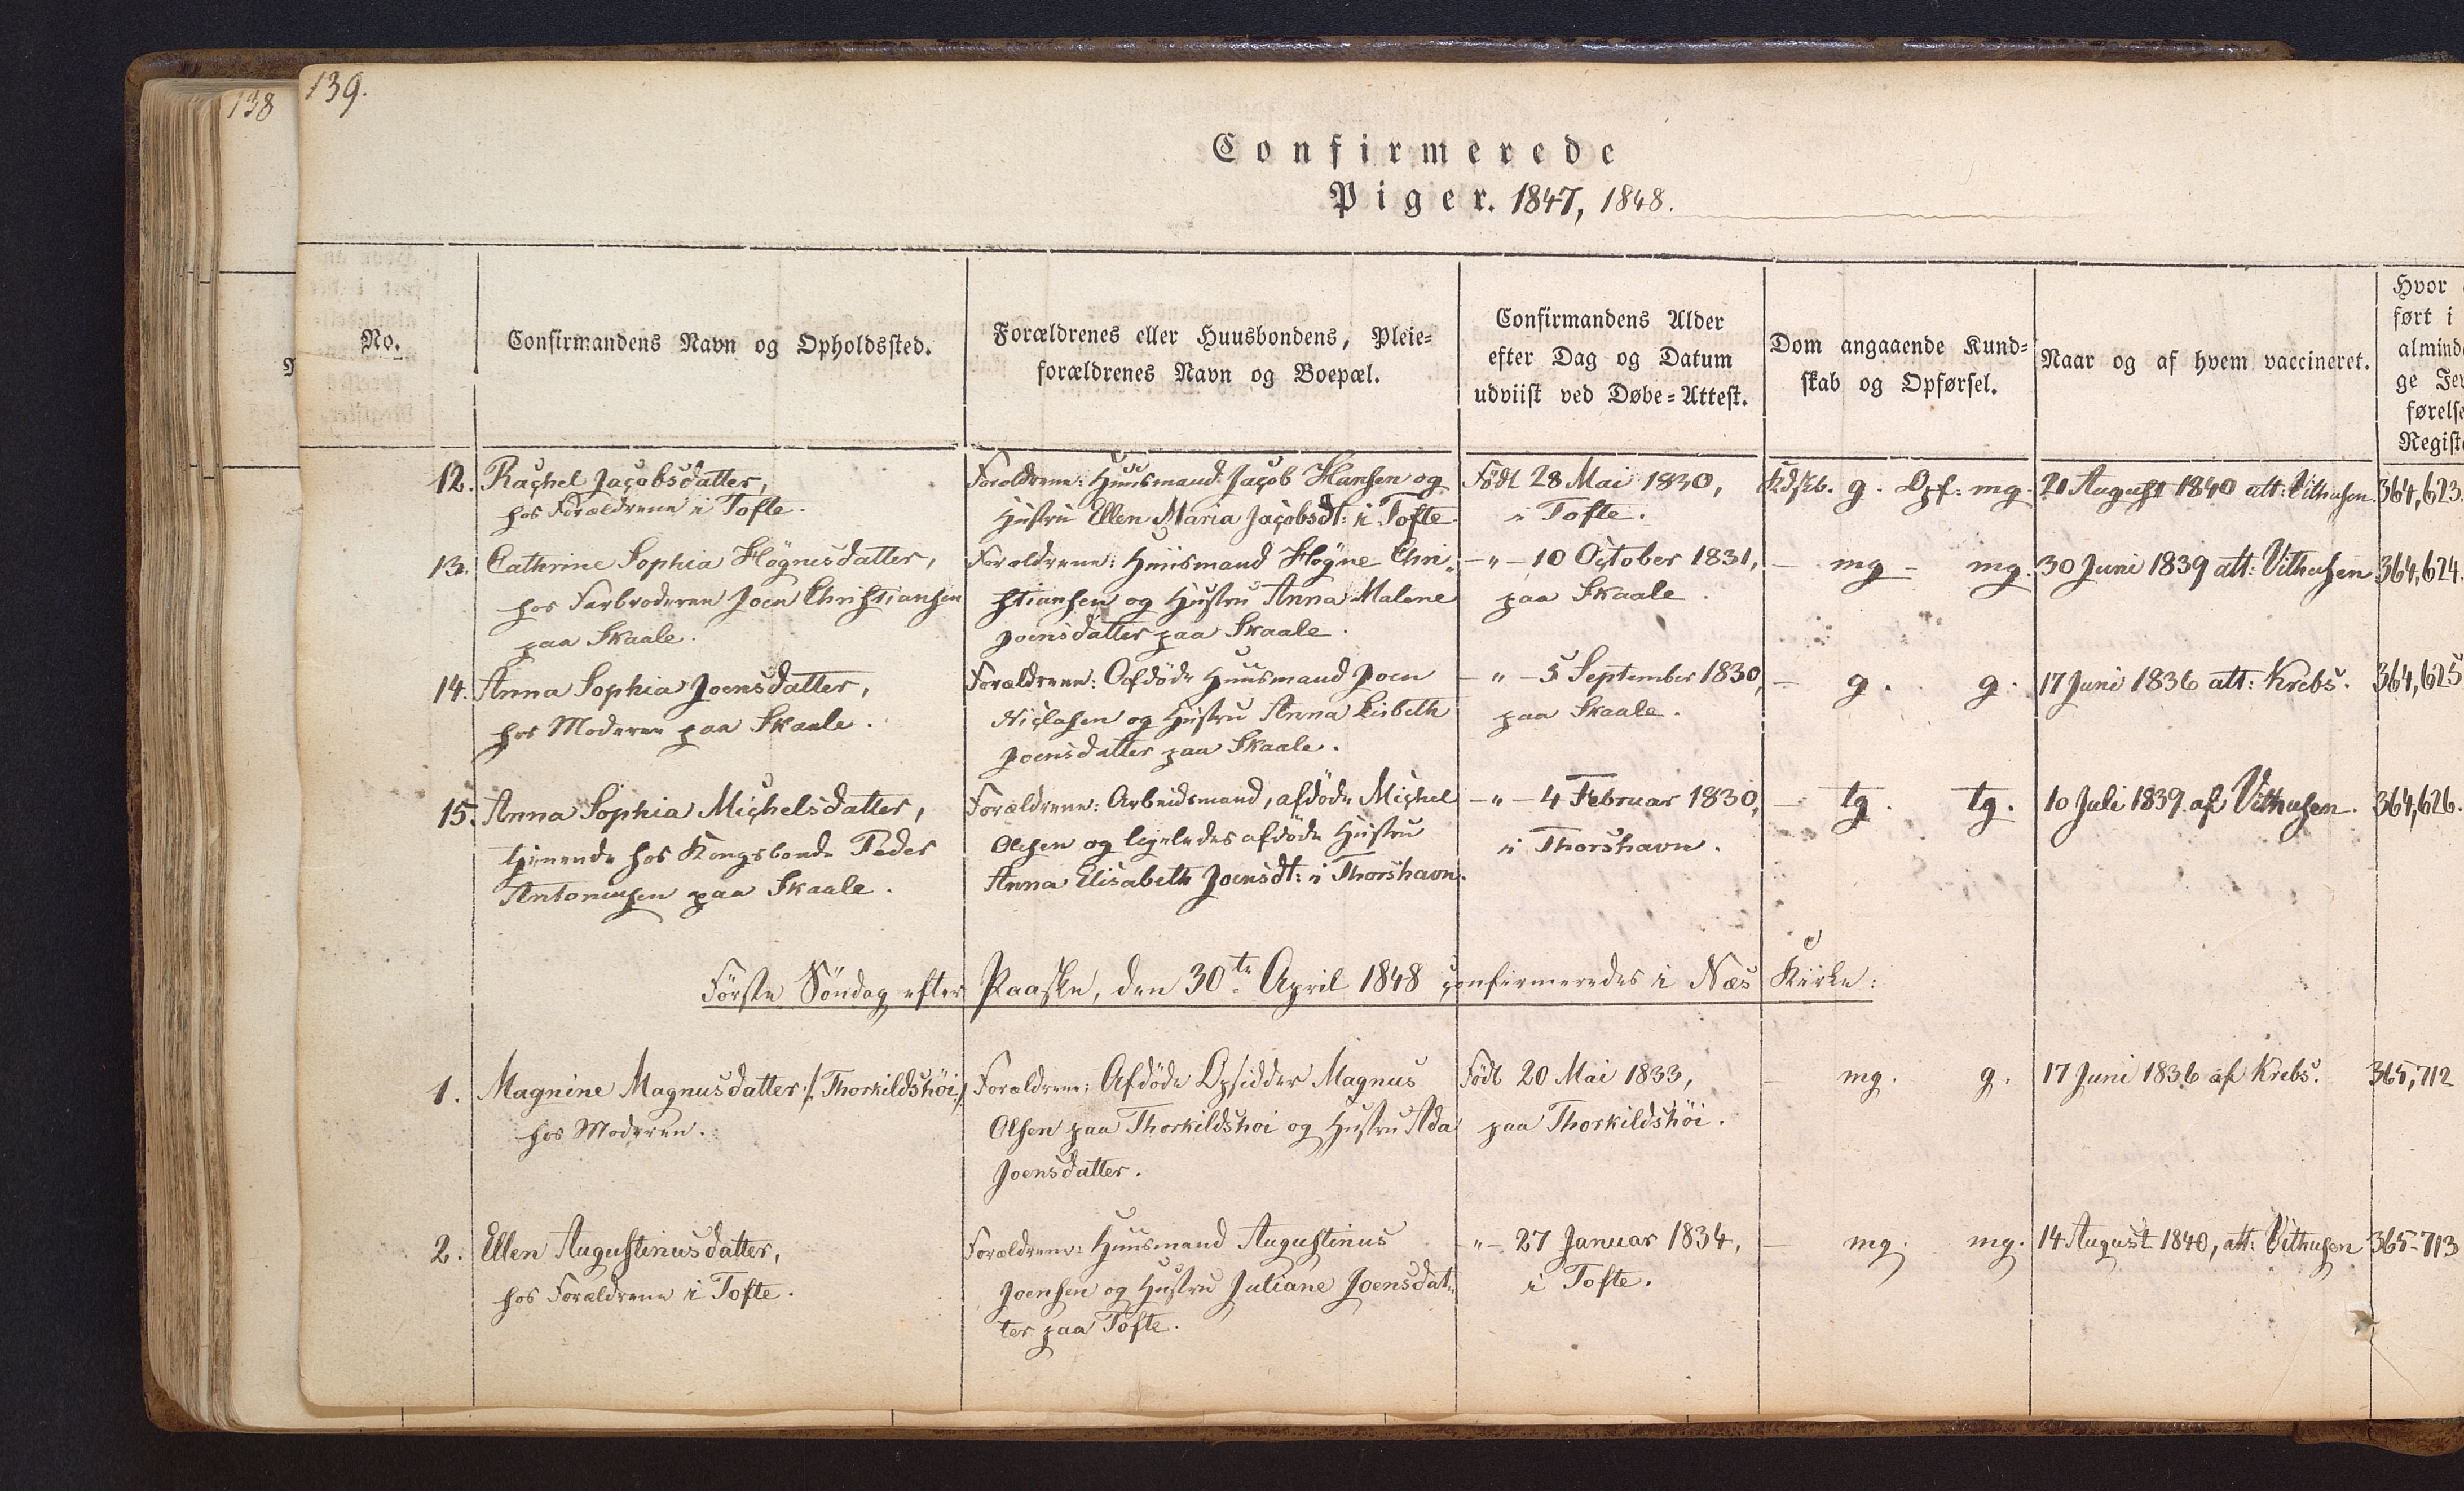 138
139.
Confirmerede
Piger. 1847, 1848.
No.
Confirmandens Navn og Opholdssted.
Forældrenes eller Huusbondens, Pleie=
forældrenes Navn og Boepæl.
Confirmandens Alder
efter Dag og Datum
udviist ved Døbe=Attest.
Dom angaaende Kund=
skab og Opførsel.
Naar og af hvem vaccineret.
Hvor
ført i
almind
ge Jev
førelse
Regist
12. Rachel Jacobsdatter,
hos Forældrene i Tofte.
Forældrene: Huusmand Jacob Hansen og
Hustru Ellen Maria Jacobsdt: i Tofte.
Födt 28 Mai 1830,
i Tofte.
Kdskb. g. Opf: mg.
21 August 1840 att: Vithusen.
364,623.
13. Cathrine Sophia Högnesdatter,
hos Farbroderen Joen Christiansen
paa Skaale.
Forældrene: Huusmand Högne Chri-
stiansen og Hustru Anna Malene
Joensdatter paa Skaale.
-"- 10 October 1831,
paa Skaale.
- mg - mg.
30 Juni 1839 att: Vithusen
364,624.
14. Anna Sophia Joensdatter,
hos Moderen paa Skaale.
Forældrene: Afdöde Huusmand Joen
Niclasen og Hustru Anna Lisbeth
Joensdatter paa Skaale.
-"- 5 September 1830,
paa Skaale.
- g. g.
17 Juni 1836 att: Krebs.
364,625
15. Anna Sophia Michelsdatter,
tjenende hos Kongsbonde Peder
Antoniusen paa Skaale.
Forældrene: Arbeidsmand, afdöde Michel
Olesen og ligeledes afdöde Hustru
Anna Elisabeth Joensdt: i Thorshavn.
-"- 4 Februar 1830,
i Thorshavn.
- tg. tg.
10 Juli 1839 af Vithusen.
364,626.
Förste Söndag efter Paaske, den 30te April 1848 confirmeredes i Næs Kirke:
1. Magnine Magnusdatter /: Thorkildshöi :/
hos Moderen.
Forældrene: Afdöde Opsidder Magnus
Olsen paa Thorkildshöi og Hustru Ada
Joensdatter.
Födt 20 Mai 1833,
paa Thorkildshöi.
- mg. g.
17 Juni 1836 af Krebs.
365,712
2. Ellen Augustinusdatter,
hos Forældrene i Tofte.
Forældrene: Huusmand Augustinus
Joensen og Hustru Juliane Joensdat-
ter paa Tofte.
-"- 27 Januar 1834,
i Tofte.
- mg. mg.
14 August 1840, att: Vithusen
365-713